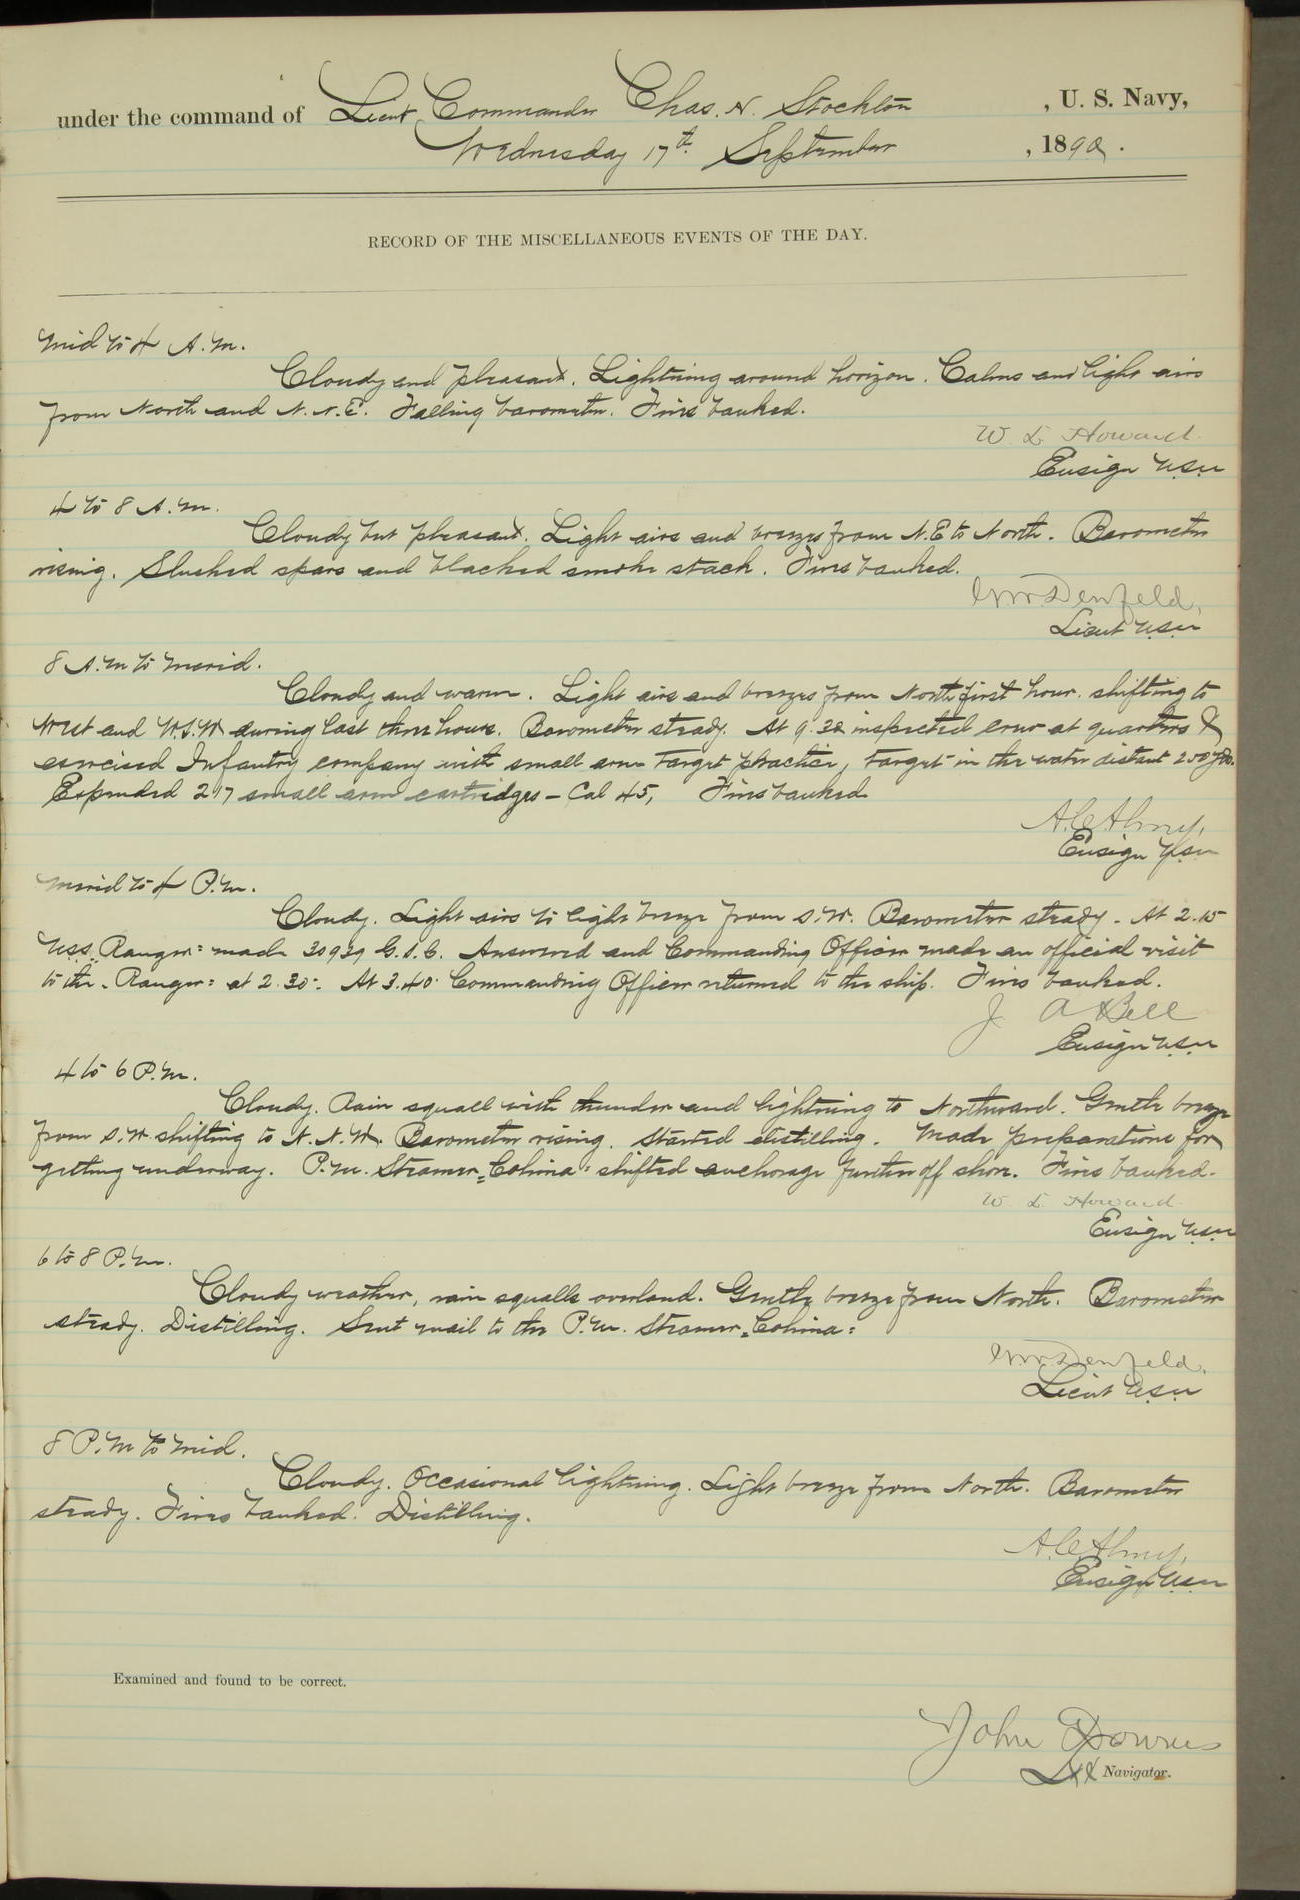 under the command of Lieut Commander Chas. H. Stockton, U. S. Navy,
Wednesday 17th September, 1890.
RECORD OF THE MISCELLANEOUS EVENTS OF THE DAY.
Mid to 4 A.M.
Cloudy and pleasant. Lightning around horizon. Calms and light airs
from North and N.N.E. Falling barometer. Fires banked.
W. L. Howard
Ensign USN
4 to 8 A.M.
Cloudy but pleasant. Light airs and breezes from N.E to North. Barometer
rising. Slushed spars and blacked smoke stack. Fires banked.
Denfeld,
Lieut USN
8 A.M to Merid.
Cloudy and warm. Light airs and breezes from North first hour. shifting to
West and W.S.W during last three hours. Barometer steady. At 9.30 inspected crew at quarters &
exercised Infantry company with small arm target practice, target in the water distant 200 yds.
Expended 217 small arm cartridges - Cal 45, Fires banked
A.C. Almy,
Ensign USN
Merid to 4 P.M.
Cloudy. Light airs to light breeze from S.W. Barometer steady - At 2.15
U.S.S. "Ranger" made 30939 G.S.C. Answered and Commanding Officer made an official visit
to the "Ranger" at 2.30. At 3.40 Commanding Officer returned to the ship. Fires banked.
J A Bell
Ensign USN
4 to 6 P.M.
Cloudy. Rain squall with thunder and lightning to Northward. Gentle breeze
from S.W. shifting to N.N.W. Barometer rising. Started distilling. Made preparations for
getting underway. P.M. Steamer "Colima" shifted anchorage further off shore. Fires banked.
W. L. Howard
Ensign USN
6 to 8 P.M.
Cloudy weather, rain squalls overland. Gentle breeze from North. Barometer
steady. Distilling. Sent mail to the P.M. Steamer "Colima"
Denfeld,
Lieut USN
8 P.M to Mid.
Cloudy. Occasional lightning. Light breeze from North. Barometer
steady. Fires banked. Distilling.
A.C. Almy,
Ensign USN
Examined and found to be correct.
John Downes
Navigator.